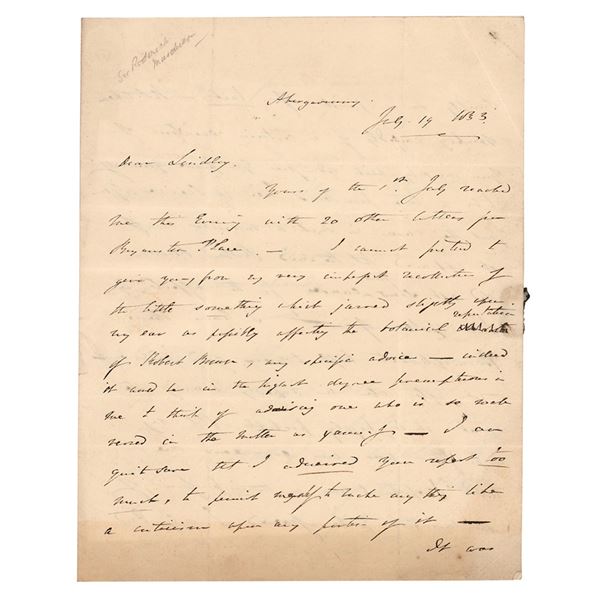 Sir Roderick
Murchison
Abergavenny.
July. 19 1833.
Dear Lindley.
Yours of the 1st July reached
me this Evening with 20 other letters from
Bryanston Place. — I cannot pretend to
give you, from my very imperfect recollection of
the little something which jarred slightly upon
my ear as possibly affecting the botanical reputation
of Robert Brown, any specific advice — indeed
it would be in the highest degree presumptuous in
me to think of advising one who is so well
versed in the matter as yourself — I am
quite sure that I admired your report too
much, to permit myself to make any thing like
a criticism upon any portion of it —
It was